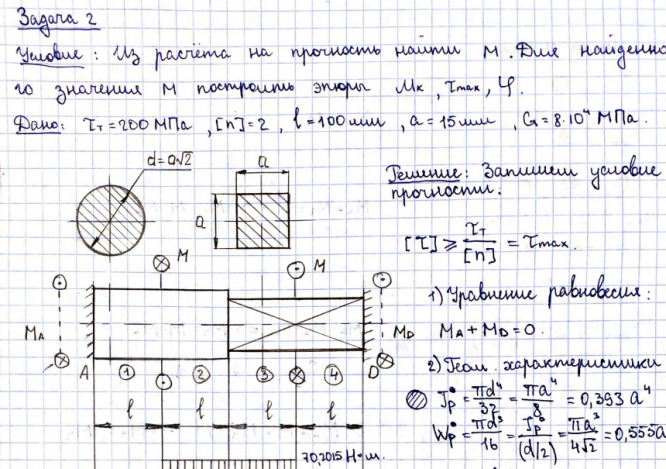 Задача 2
Условие: Из расчёта на прочность найти М. Для найденно
го значения М построить эпюры Мк, τmax, φ.
Дано: τт = 200 МПа, [n] = 2, l = 100 мм, a = 15 мм, G = 8·10⁴ МПа.
d = a√2
a
a
Решение: Запишем условие
прочности:
[τ] ⩾ τт/[n] = τmax.
M
M
1) Уравнение равновесия:
MA
MD
MA + MD = 0.
A
1
2
3
4
D
2) Геом. характеристики
Jp = πd⁴/32 = πa⁴/8 = 0,393 a⁴
l
l
l
l
Wp = πd³/16 = Jp/(d/2) = πa³/4√2 = 0,555a
70,2015 Н·м.